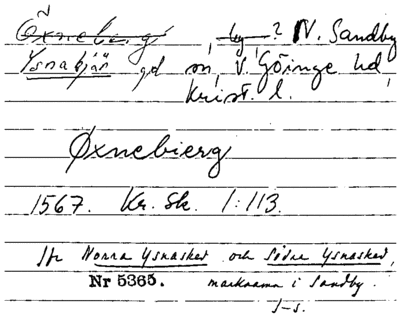 Öxneberg by ? N. Sandby
Ysnabjär gd sn, V. Göinge hd,
Krist. l.
Øxnebierg
1567. Kr. Sk. 1:113.
Jfr Norra Ysnasked och Södra Ysnasked,
Nr 5365. marknamn i Sandby.
J-s.